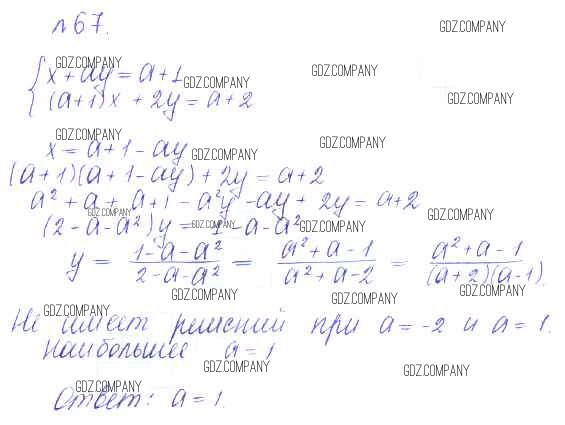 №67.
GDZ.COMPANY
GDZ.COMPANY
x + ay = a + 1
GDZ.COMPANY
GDZ.COMPANY
(a+1)x + 2y = a + 2
GDZ.COMPANY
GDZ.COMPANY
GDZ.COMPANY
x = a + 1 - ay
GDZ.COMPANY
(a+1)(a+1-ay) + 2y = a + 2
a² + a + a + 1 - a²y - ay + 2y = a + 2
GDZ.COMPANY
GDZ.COMPANY
(2 - a - a²)y = 1 - a - a²
GDZ.COMPANY
GDZ.COMPANY
y = \frac{1-a-a²}{2-a-a²} = \frac{a²+a-1}{a²+a-2} = \frac{a²+a-1}{(a+2)(a-1)}.
GDZ.COMPANY
GDZ.COMPANY
GDZ.COMPANY
Не имеет решений при a = -2 и a = 1.
GDZ.COMPANY
Наибольшее a = 1
GDZ.COMPANY
GDZ.COMPANY
GDZ.COMPANY
Ответ: a = 1.